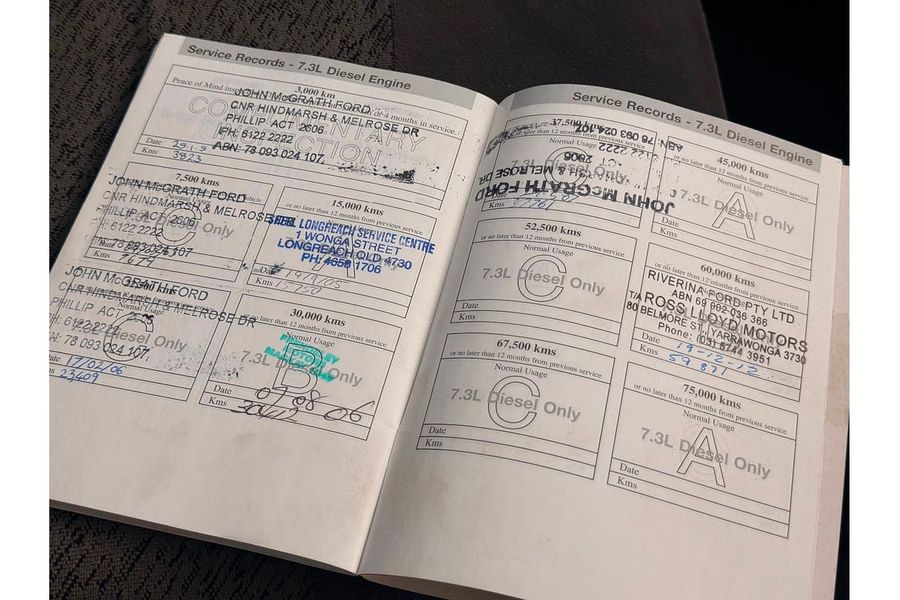 Service Records - 7.3L Diesel Engine
3,000 km
Peace of Mind
4 months in service
COMPLIMENTARY
JOHN McGRATH FORD
CNR HINDMARSH & MELROSE DR
PHILLIP ACT 2606
PH: 6122 2222
ABN: 78 093 024 107
Date
Kms 3923
7,500 km
JOHN McGRATH FORD
CNR HINDMARSH & MELROSE DR
PHILLIP ACT 2606
PH: 6122 2222
78 093 024 107
Only
Date
Kms 7679
15,000 kms
or no later than 12 months from previous service
SHELL LONGREACH SERVICE CENTRE
1 WONGA STREET
LONGREACH QLD 4730
PH: 4658 1706
Date
Kms
JOHN McGRATH FORD
CNR HINDMARSH & MELROSE DR
PHILLIP ACT
PH: 6122 2222
ABN: 78 093 024 107
Normal Usage
Diesel Only
Date 17/02/06
Kms 23409
30,000 kms
or no later than 12 months from previous service
Normal Usage
7.3L Diesel Only
B
Date 08 06
Kms
Service Records - 7.3L Diesel Engine
37,500 kms
or no later than 12 months from previous service
ABN: 78 093 024 107
2222
2606
JOHN McGRATH FORD
& MELROSE DR
Kms
45,000 kms
or no later than 12 months from previous service
Normal Usage
7.3L Diesel Only
A
52,500 kms
or no later than 12 months from previous service
Normal Usage
7.3L Diesel Only
C
Date
Kms
60,000 kms
or no later than 12 months from previous service
RIVERINA FORD PTY LTD
ABN 69 062 036 366
T/A ROSS LLOYD MOTORS
80 BELMORE ST, YARRAWONGA 3730
Phone: (03) 5744 3951
Date 19-12-12
Kms 59 871
67,500 kms
or no later than 12 months from previous service
Normal Usage
7.3L Diesel Only
C
Date
Kms
75,000 kms
or no later than 12 months from previous service
Normal Usage
7.3L Diesel Only
A
Date
Kms